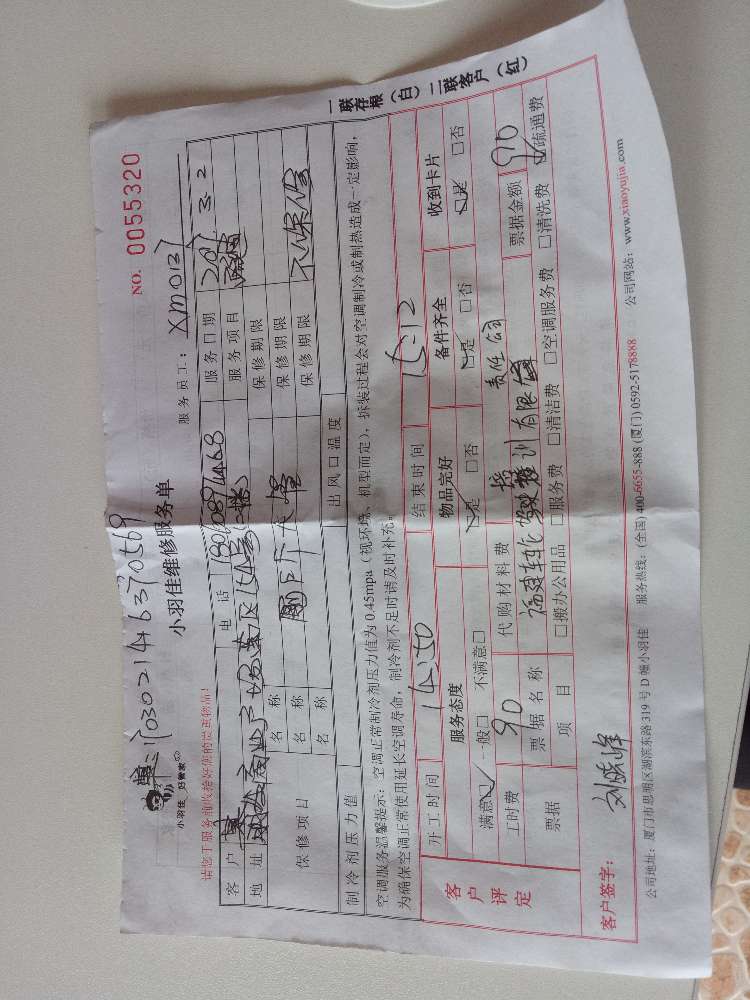 单:17030214631569
小羽佳 好管家
小羽佳维修服务单
NO. 0055320
请您于服务前收拾好您的贵重物品!
服务员工: XM0137
客户 电话 服务日期
地址 服务项目
保修项目 名称 保修期限
名称 保修期限
名称 保修期限 不保修
制冷剂压力值 出风口温度
空调服务温馨提示:空调正常制冷剂压力值为 0.45mpa(视环境、机型而定),拆装过程会对空调制冷或制热造成一定影响,
为确保空调正常使用延长空调寿命,制冷剂不足时请及时补充。
一联存根(白) 二联客户(红)
客户评定
开工时间 14:50 结束时间 15:12
服务态度 物品完好 备件齐全 收到卡片
满意☑ 一般□ 不满意□ ☑是 □否 ☑是 □否 ☑是 □否
工时费 90 代购材料费 票据金额 90
票据 票据名称 有限 责任公司
项目 □搬办公用品 □服务费 □清洁费 □空调服务费 □清洗费 ☑疏通费
客户签字:
公司地址:厦门市思明区湖滨东路 319 号 D 幢小羽佳 服务热线:(全国) 400-6655-888 (厦门) 0592-5178888 公司网站: www.xiaoyujia.com